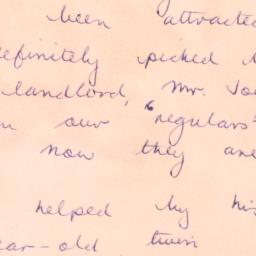 been attracted
definitely picked
landlord, Mr. Joe
our "regulars"
now they are
helped by his
ear-old twin